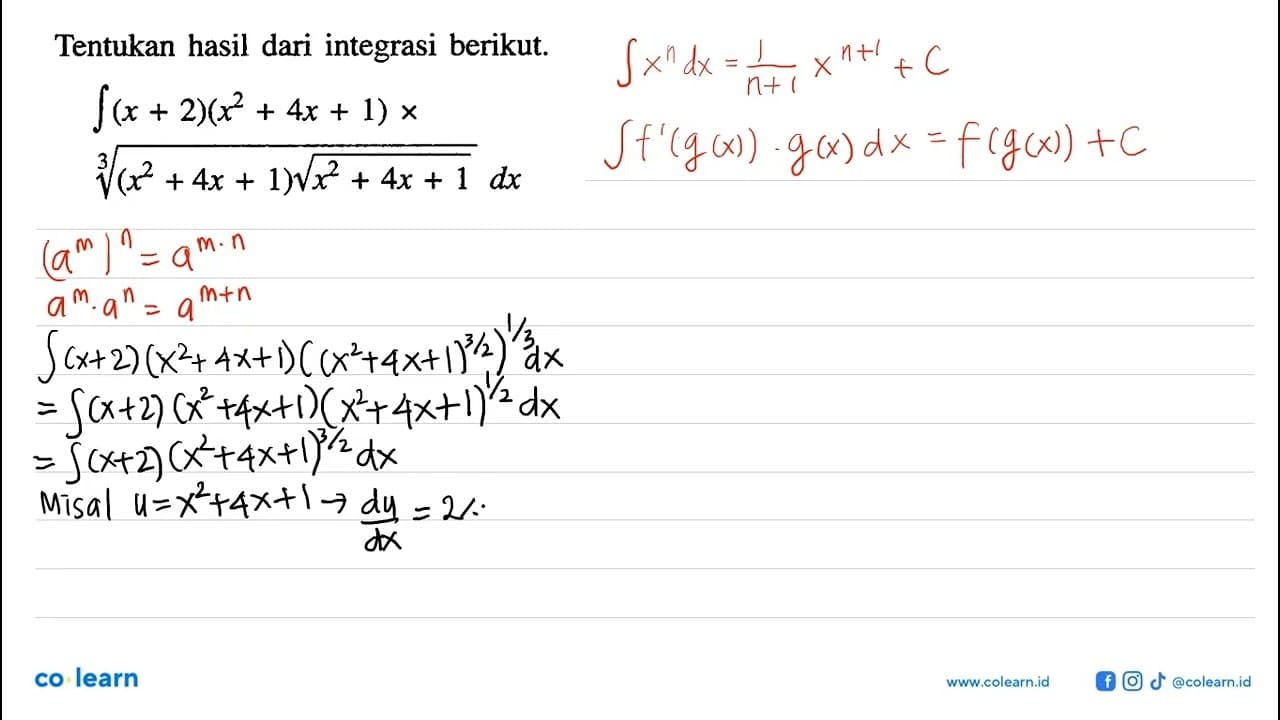 Tentukan hasil dari integrasi berikut.
∫(x + 2)(x² + 4x + 1) ×
∛((x² + 4x + 1)√(x² + 4x + 1)) dx
∫xⁿ dx = 1/(n+1) x^(n+1) + C
∫f'(g(x)) · g(x) dx = f(g(x)) + C
(a^m)^n = a^(m·n)
a^m · a^n = a^(m+n)
∫(x+2)(x²+4x+1)((x²+4x+1)^(3/2))^(1/3) dx
= ∫(x+2)(x²+4x+1)(x²+4x+1)^(1/2) dx
= ∫(x+2)(x²+4x+1)^(3/2) dx
Misal u = x²+4x+1 → dy/dx = 2
co learn
www.colearn.id
@colearn.id